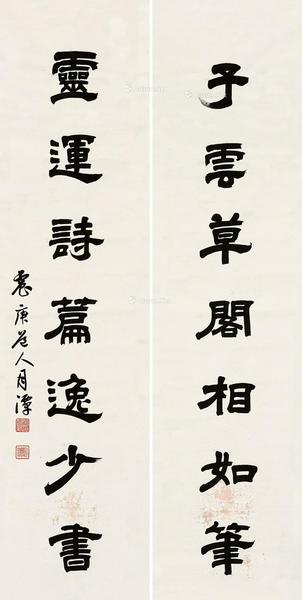 子雲草閣相如筆
靈運詩篇逸少書
震庚老人月潭